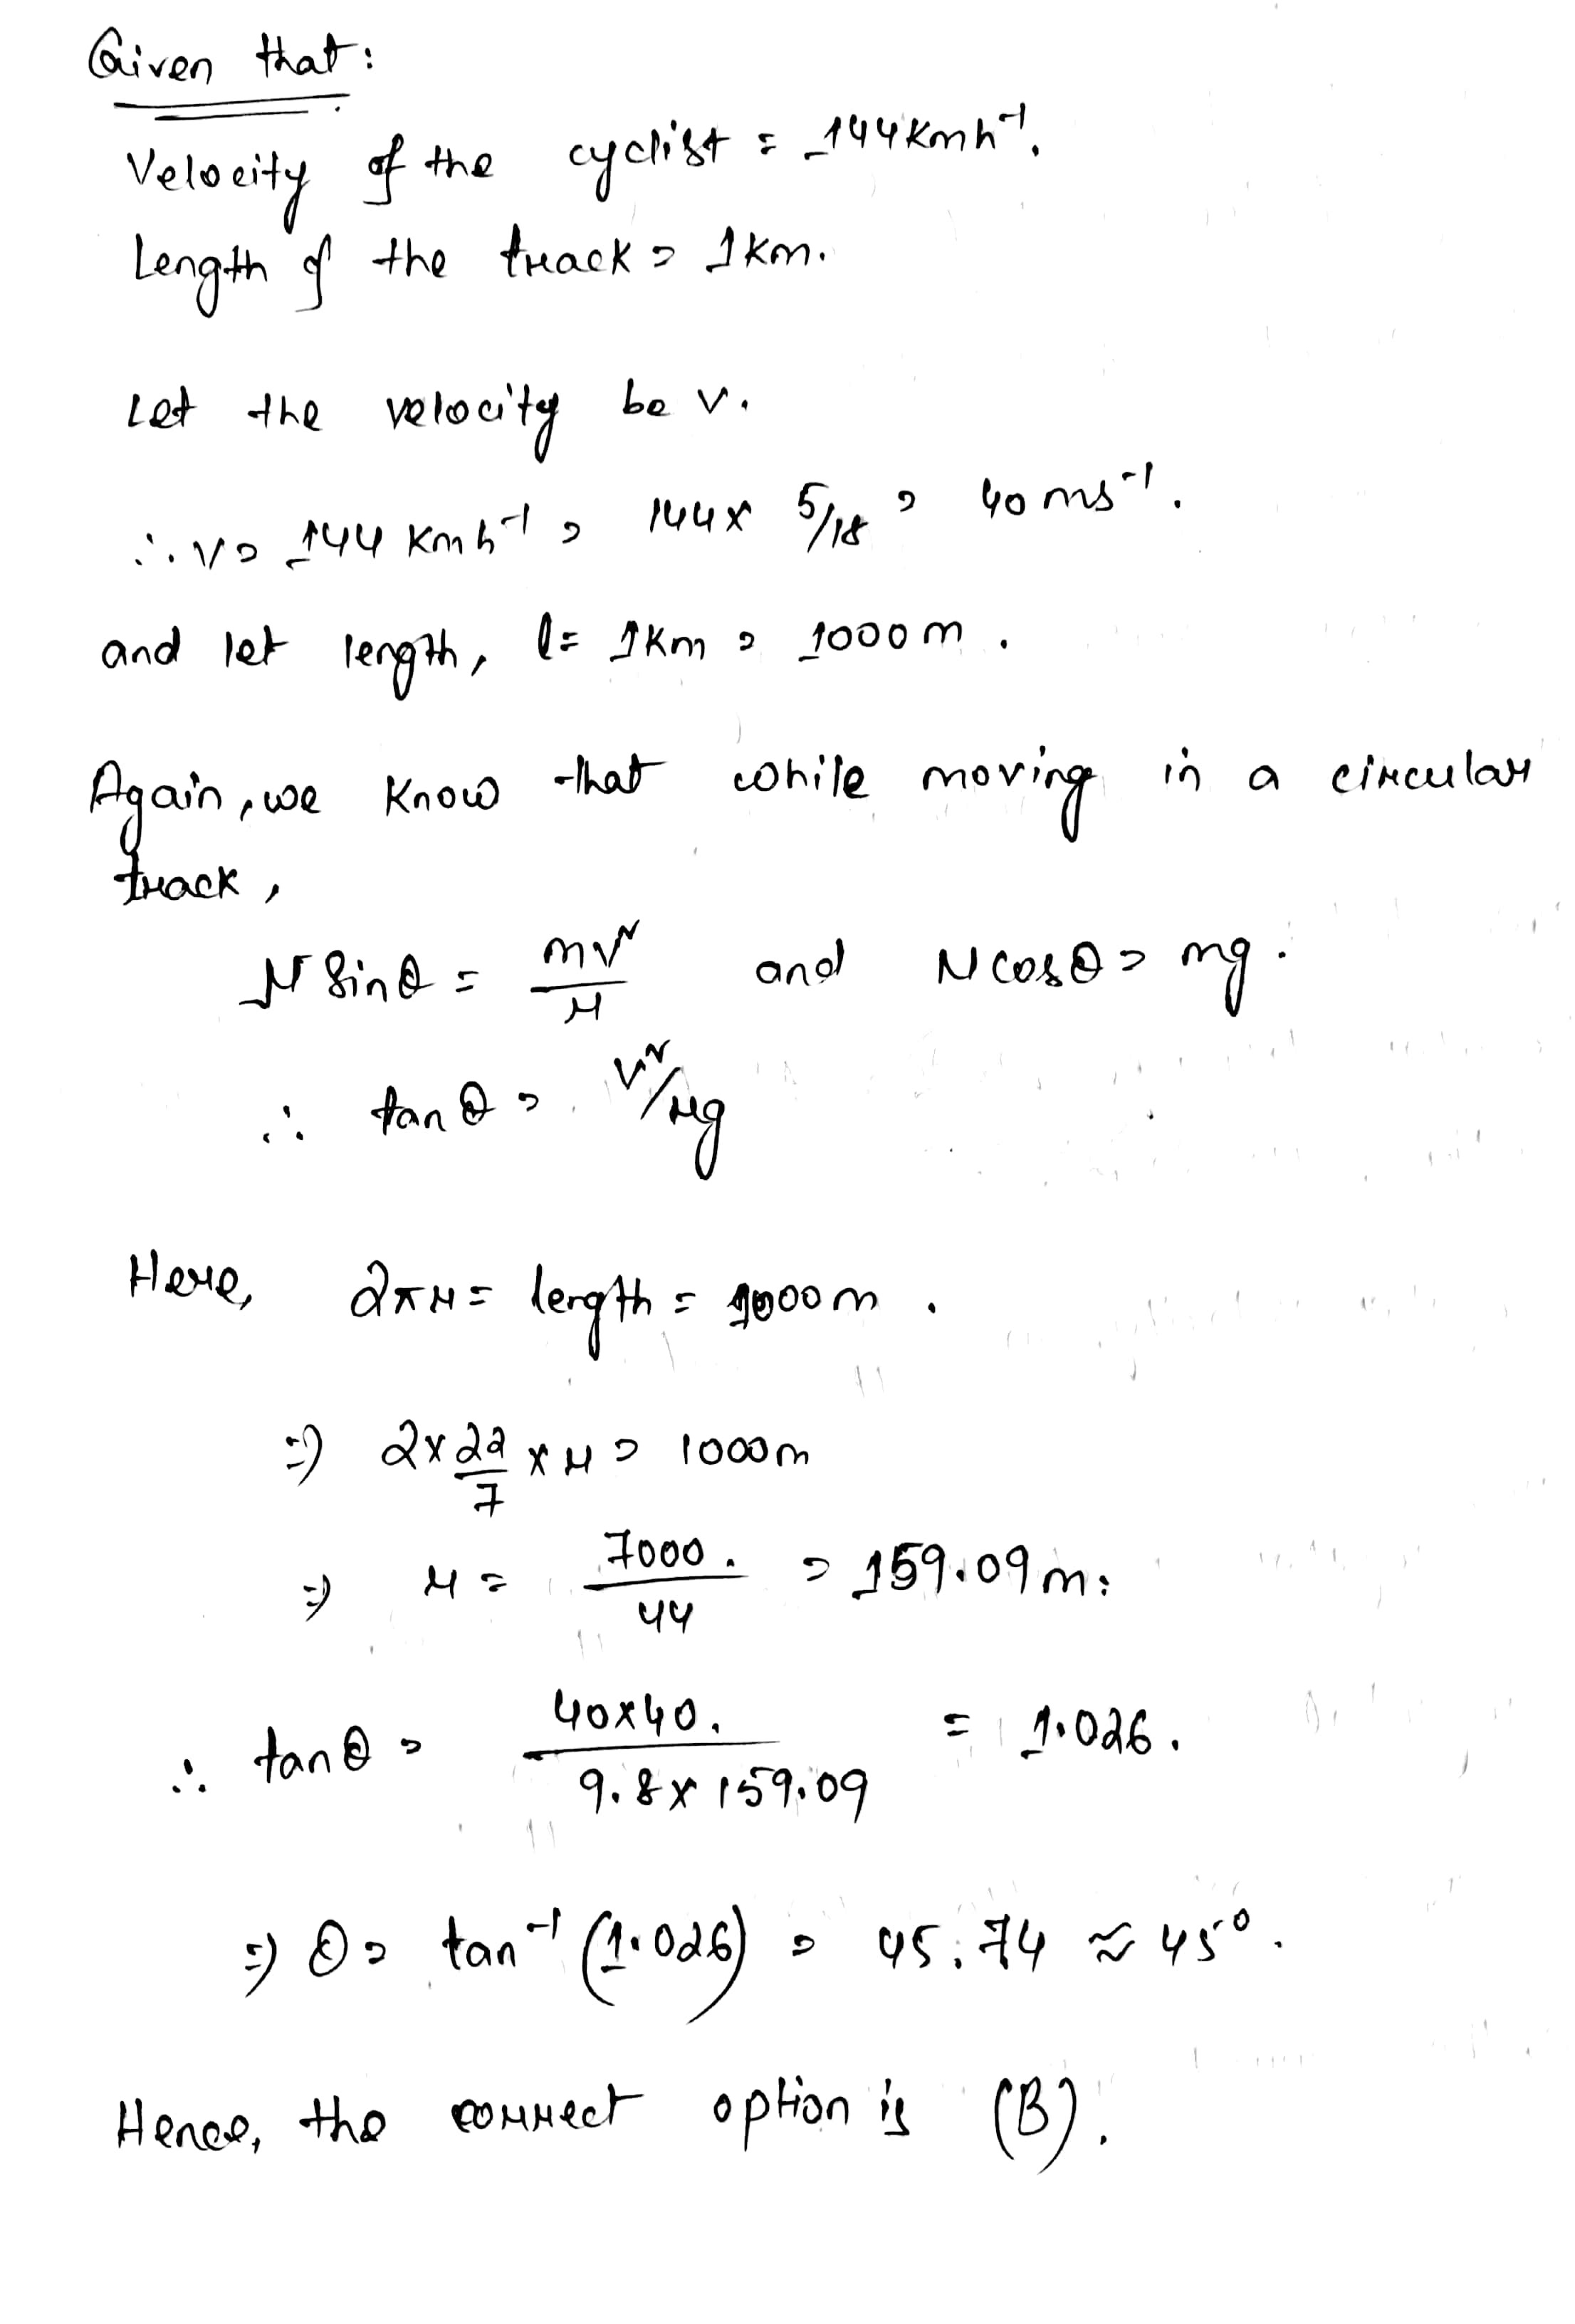 Given that:
Velocity of the cyclist = 144 Kmh⁻¹.
Length of the track = 1 Km.
Let the velocity be v.
∴ v = 144 Kmh⁻¹ = 144 x 5/18 = 40 ms⁻¹.
and let length, l = 1 Km = 1000 m .
Again, we know that while moving in a circular
track,
N Sinθ = mv²/r and N cosθ = mg .
∴ tan θ = v²/rg
Here, 2πr = length = 1000 m .
⇒ 2 x 22/7 x r = 1000 m
⇒ r = 7000 . / 44 = 159.09 m.
∴ tan θ = 40x40 . / 9.8 x 159.09 = 1.026 .
⇒ θ = tan⁻¹ (1.026) = 45.74 ≈ 45° .
Hence, the correct option is (B) .